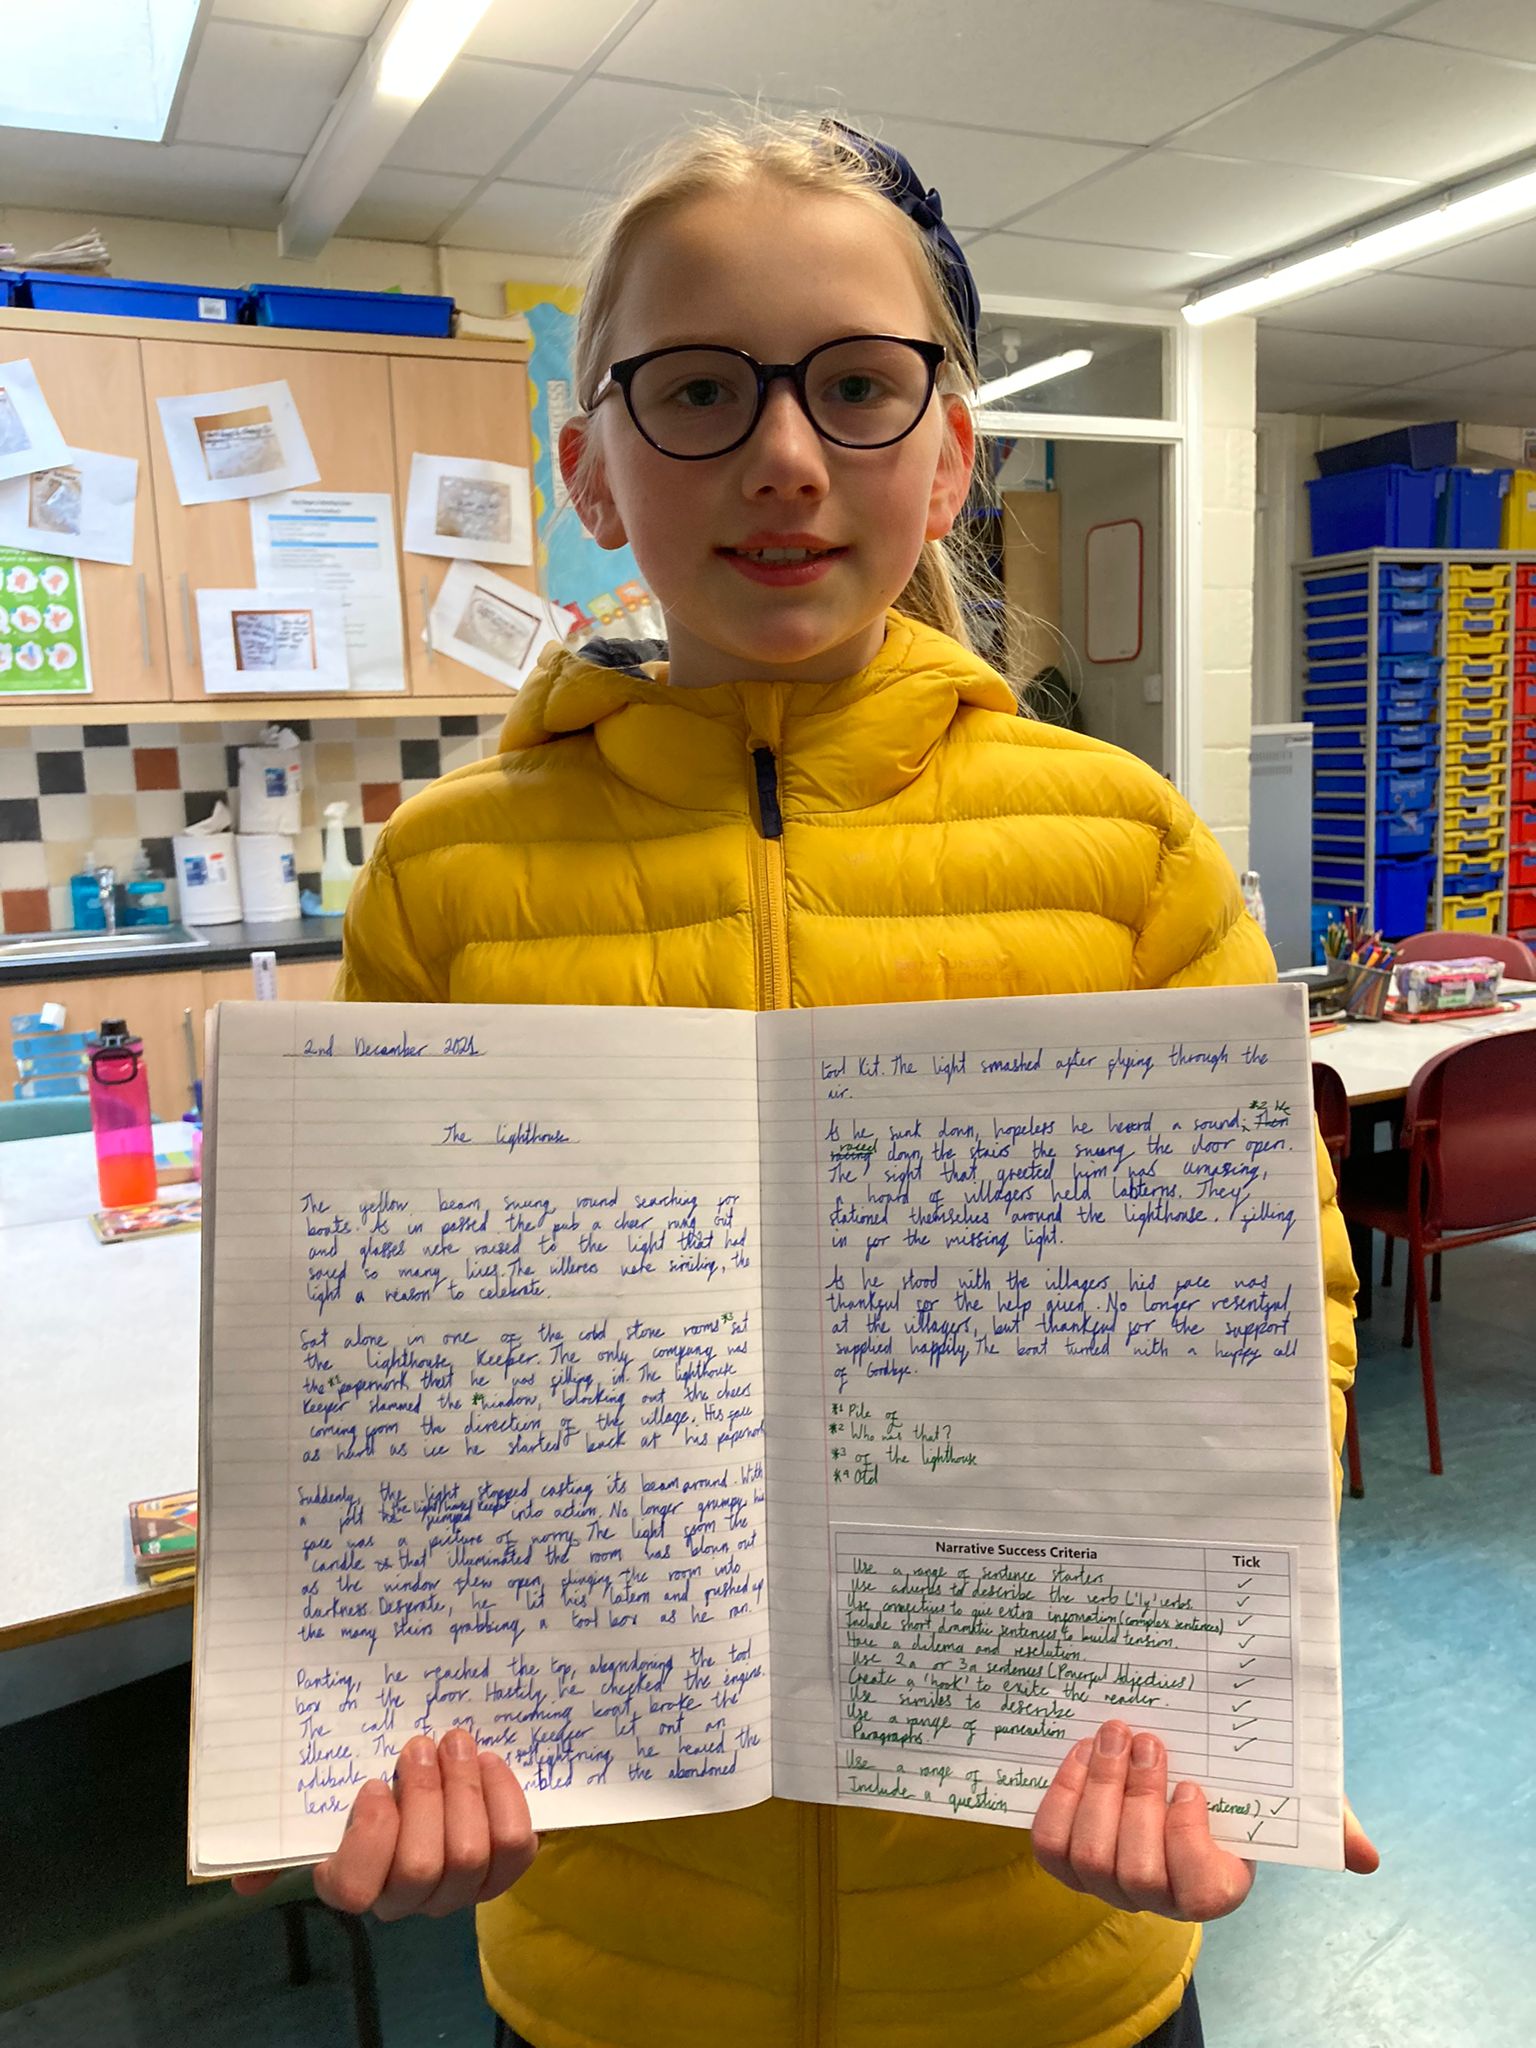 2nd December 2021
The lighthouse
The yellow beam swung round searching for
boats. As in passed the pub a cheer rung out
and glasses were raised to the light that had
saved so many lives. The villeres were smiling, the
light a reason to celebrate.
Sat alone in one of the cold stone rooms *3 sat
the lighthouse keeper. The only company was
the *1 paperwork that he was filling in. The lighthouse
Keeper slammed the *4 window, blocking out the cheers
coming from the direction of the village. His face
as hard as ice he started back at his paperwork
Suddenly, the light stopped casting its beam around. With
a jolt the lighthouse keeper jumped into action. No longer grumpy his
face was a picture of worry. The light from the
candle that illuminated the room was blown out
as the window flew open, flinging the room into
darkness. Desprate, he lit his latern and rushed up
the many stairs grabbing a tool box as he ran.
Panting, he reached the top, abandoning the tool
box on the floor. Hastily he checked the engine.
The call of an oncoming boat broke the
silence. The keeper let out an
adibale lightning, he heaved the
lense on the abandoned
tool Kit. The light smashed after flying through the
air.
As he sunk down, hopeless he heard a sound; *2 He Then
raced racing down the stairs the swung the door open.
The sight that greeted him was amazing,
a hoard of villagers held lanterns. They
stationed themselves around the lighthouse, filling
in for the missing light.
As he stood with the villagers his face was
thankful for the help given. No longer resentful
at the villagers, but thankful for the support
supplied happily. The boat turned with a happy call
of Goodbye.
*1 Pile of
*2 Who was that?
*3 of the lighthouse
*4 Old
Narrative Success Criteria Tick
Use a range of sentence starters ✓
Use adverbs to describe the verb ('ly' verbs. ✓
Use conectives to give extra infomation (complex sentences) ✓
Include short dramatic sentences to build tension. ✓
Have a dilema and resolution.
Use 2a or 3a sentences (Powerful Adjectives) ✓
Create a 'hook' to exite the reader. ✓
Use similes to describe ✓
Use a range of puncuation ✓
Paragraphs. ✓
Use a range of sentence sentences) ✓
Include a question ✓
MOUNTAIN
WAREHOUSE